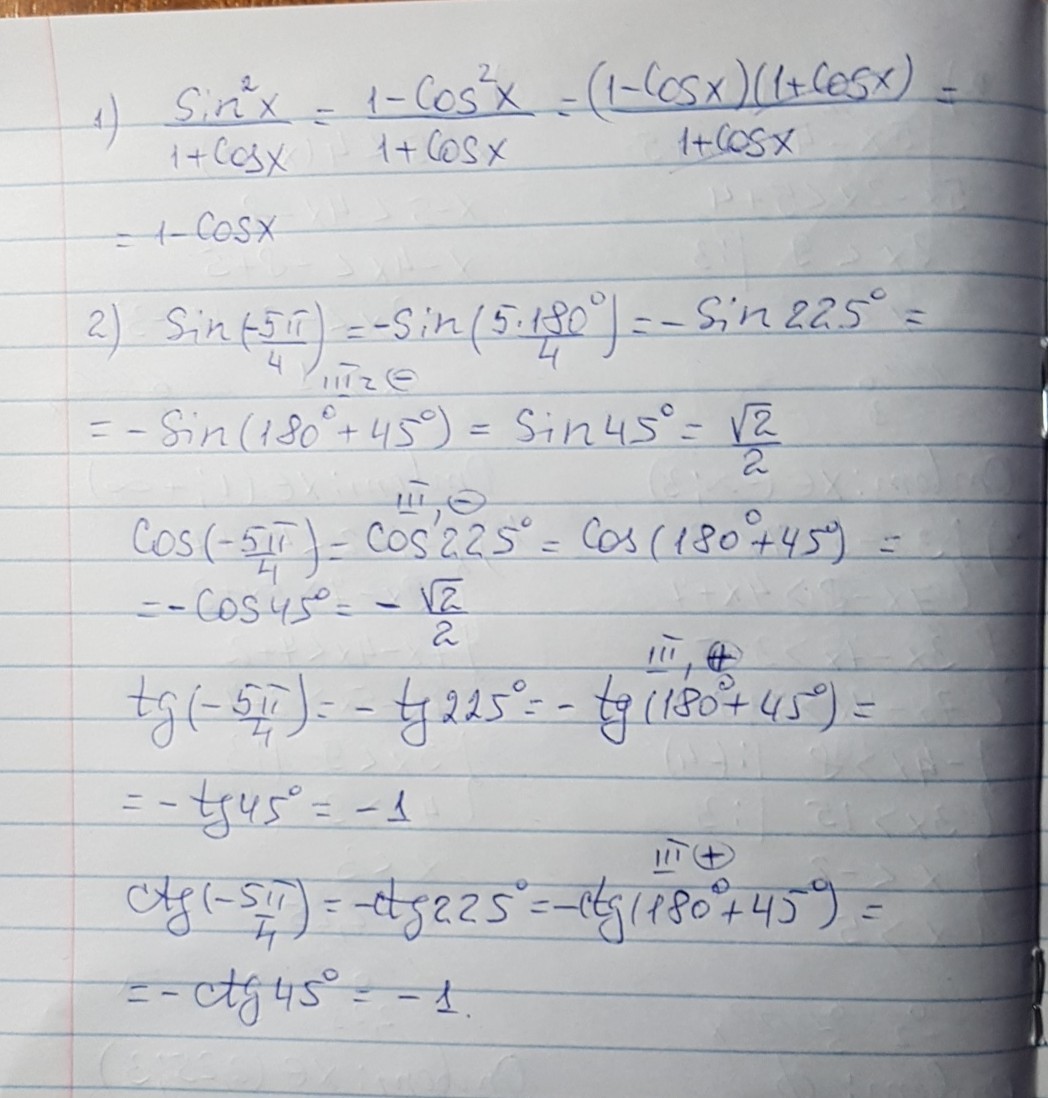 1) sin²x/(1+cosx) = (1-cos²x)/(1+cosx) = (1-cosx)(1+cosx)/(1+cosx) =
= 1-cosx
2) sin(-5π/4) = -sin(5·180°/4) = -sin 225° =
III г ⊖
= -sin(180°+45°) = sin45° = √2/2
III, ⊖
cos(-5π/4) = cos 225° = cos(180°+45°) =
= -cos45° = -√2/2
III, ⊕
tg(-5π/4) = -tg225° = -tg(180°+45°) =
= -tg45° = -1
III ⊕
ctg(-5π/4) = -ctg225° = -ctg(180°+45°) =
= -ctg45° = -1.